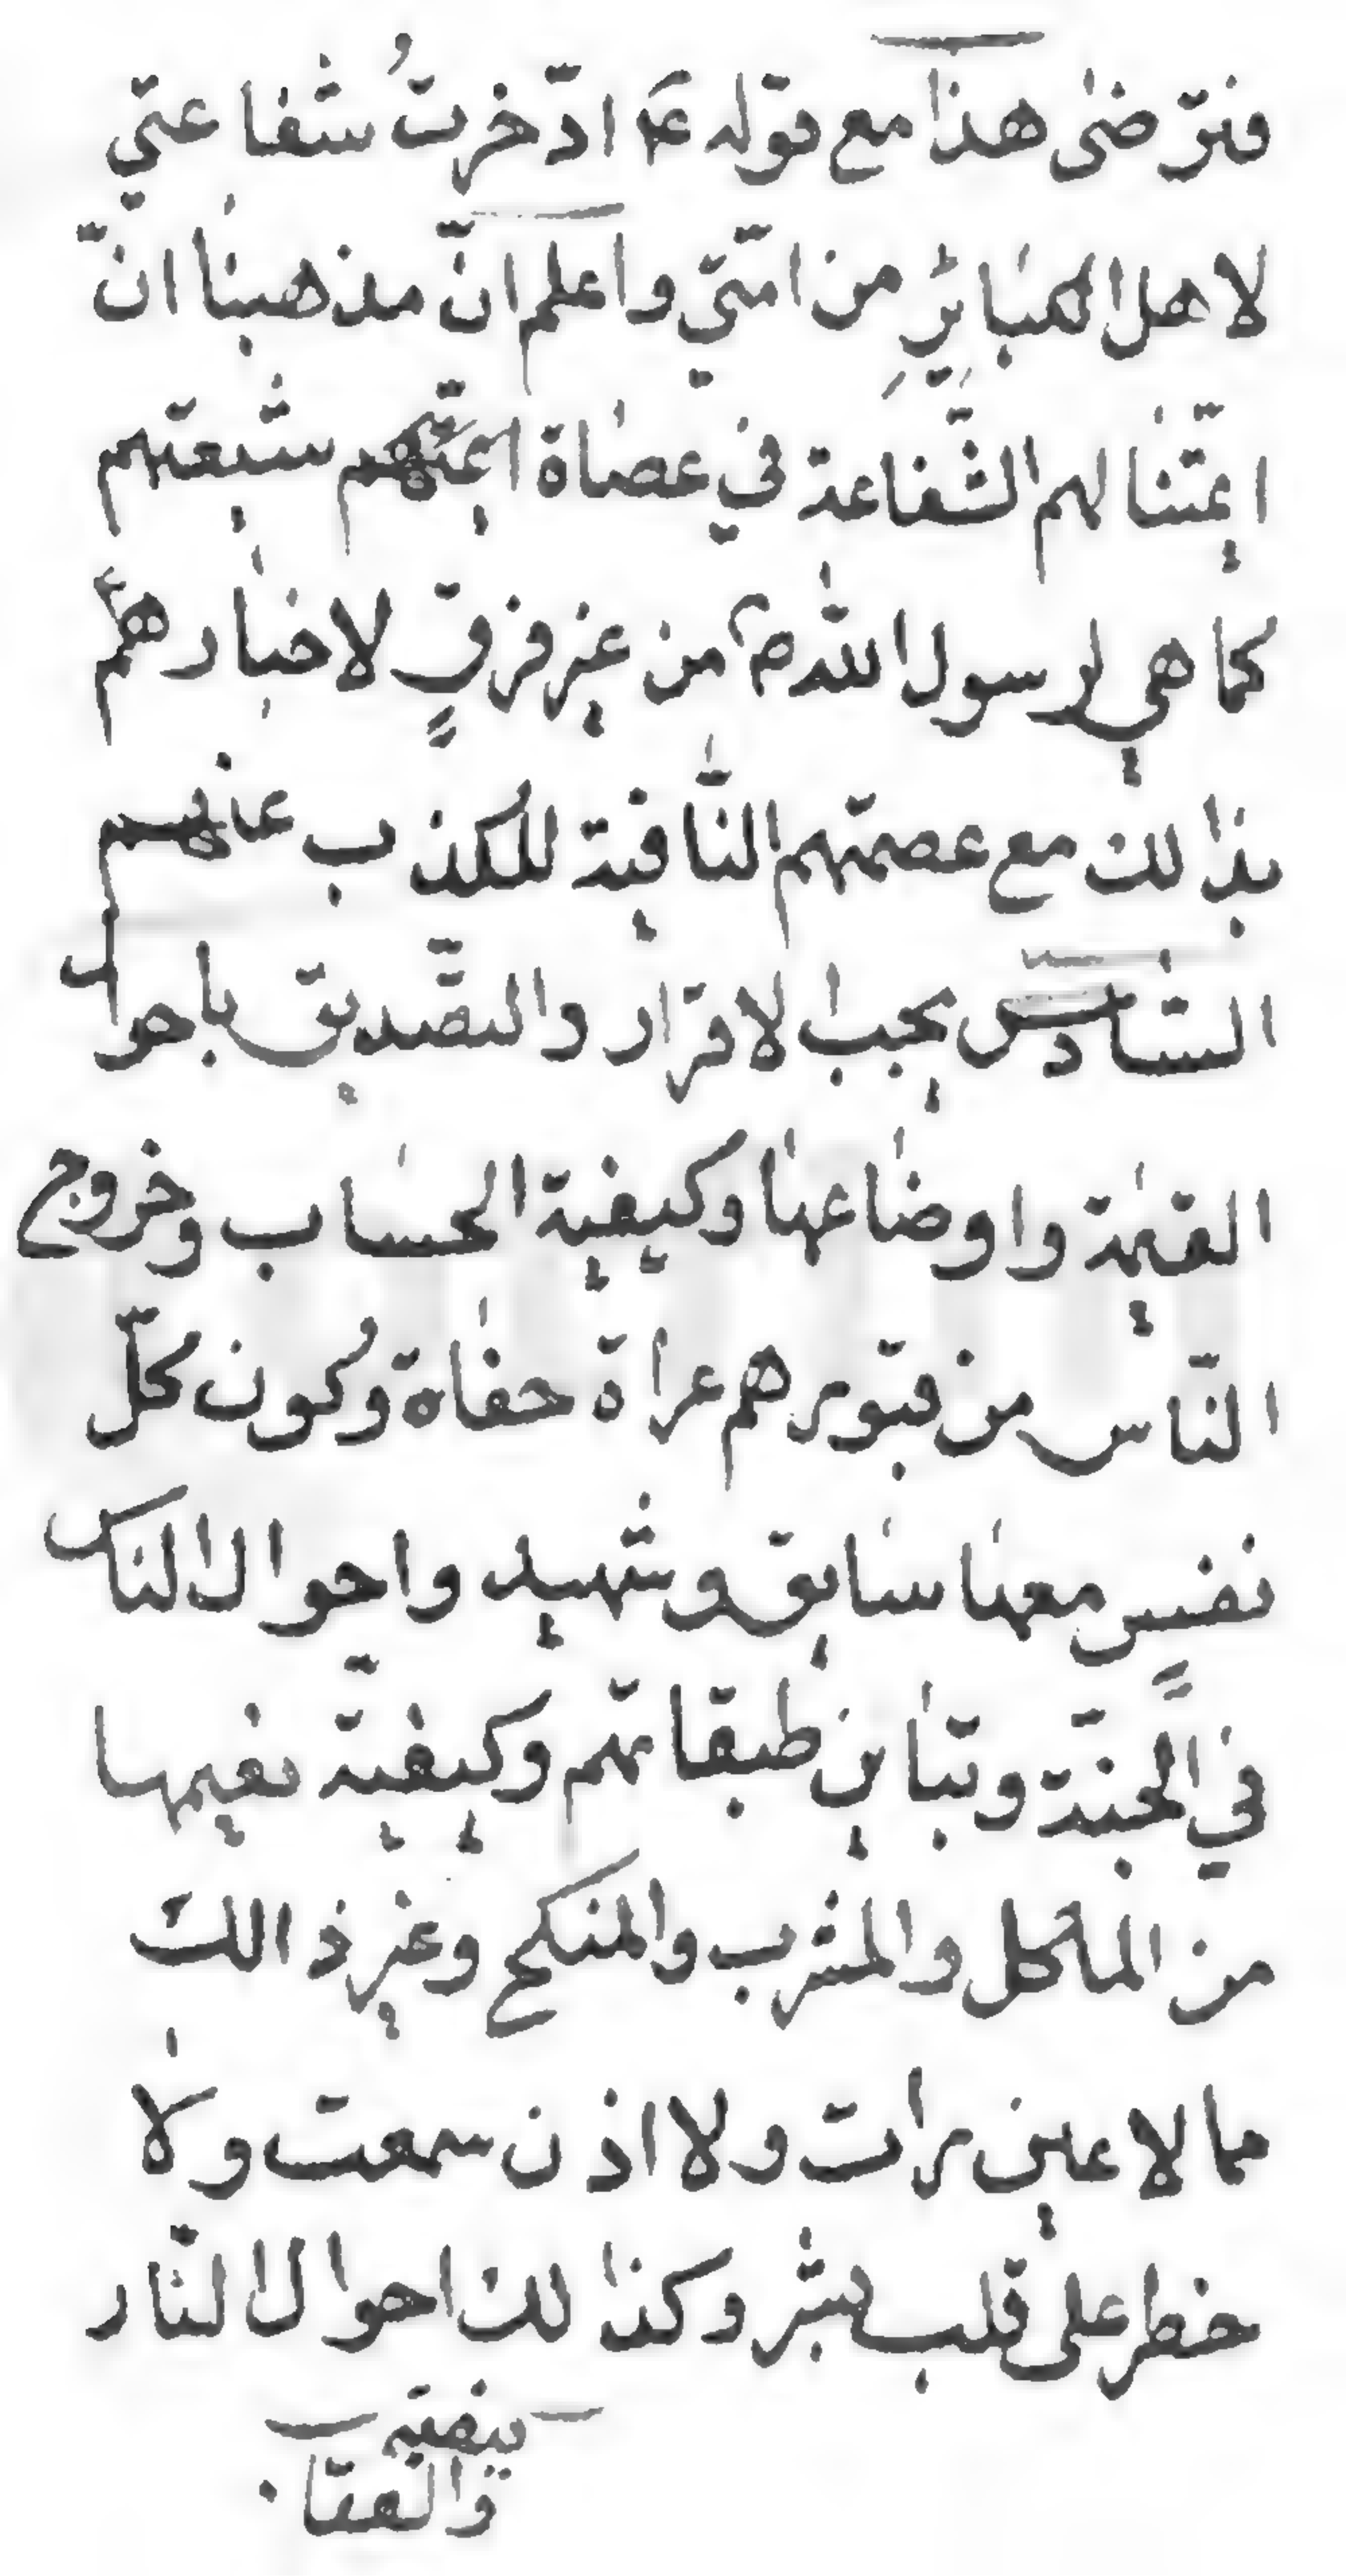 فترضى هذا مع قوله ع ادّخرتُ شفاعتي
لاهل الكبائرِ من امّتي واعلم انّ مذهبنا انّ
ائمّتنا لهم الشّفاعة في عصاة ائمتهم شيعتهم
كما هي لرسول الله ص من غير فرقٍ لاخبارهم
بذالك مع عصمتهم النّافية للكذب عنهم
السّادس يجب الاقرار والتّصديق باحوال
القيٰمة واوضاعها وكيفية الحساب وخروج
النّاس من قبورهم عراة حفاة وكون كلّ
نفسٍ معها سايق وشهيد واحوال الناس
في الجنّة وتباين طبقاتهم وكيفيّة نعيمها
من المأكل والمشرب والمنكح وغير ذالك
مما لا عين رات ولا اذن سمعت ولا
خطر على قلب بشر وكذالك احوال النّار
وكيفيّة
والعقا